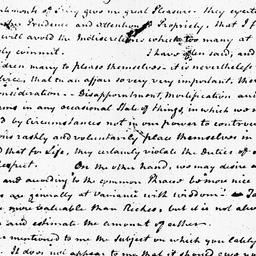 of give me great Pleasure. They
Prudence and attention to Propriety, that I
will avoid the Indiscretions which too many at
commit. I have often said, and
dren marry to please themselves - it is nevertheless
that on an affair so very very important, there
consideration - Disappointment, Mortification and
in any occasional State of things in which we
by circumstances not in our power to controul
rashly and voluntarily place themselves in
that for Life, they certainly violate the Duties of
respect. On the other hand, we may desire
and according to the common Phrase be more nice
are generally at Variance with Wisdom -
more valuable than Riches, but it is not
and estimate the amount of either.
mentioned to me the Subject on which you lately
It does not appear to me that it should give you